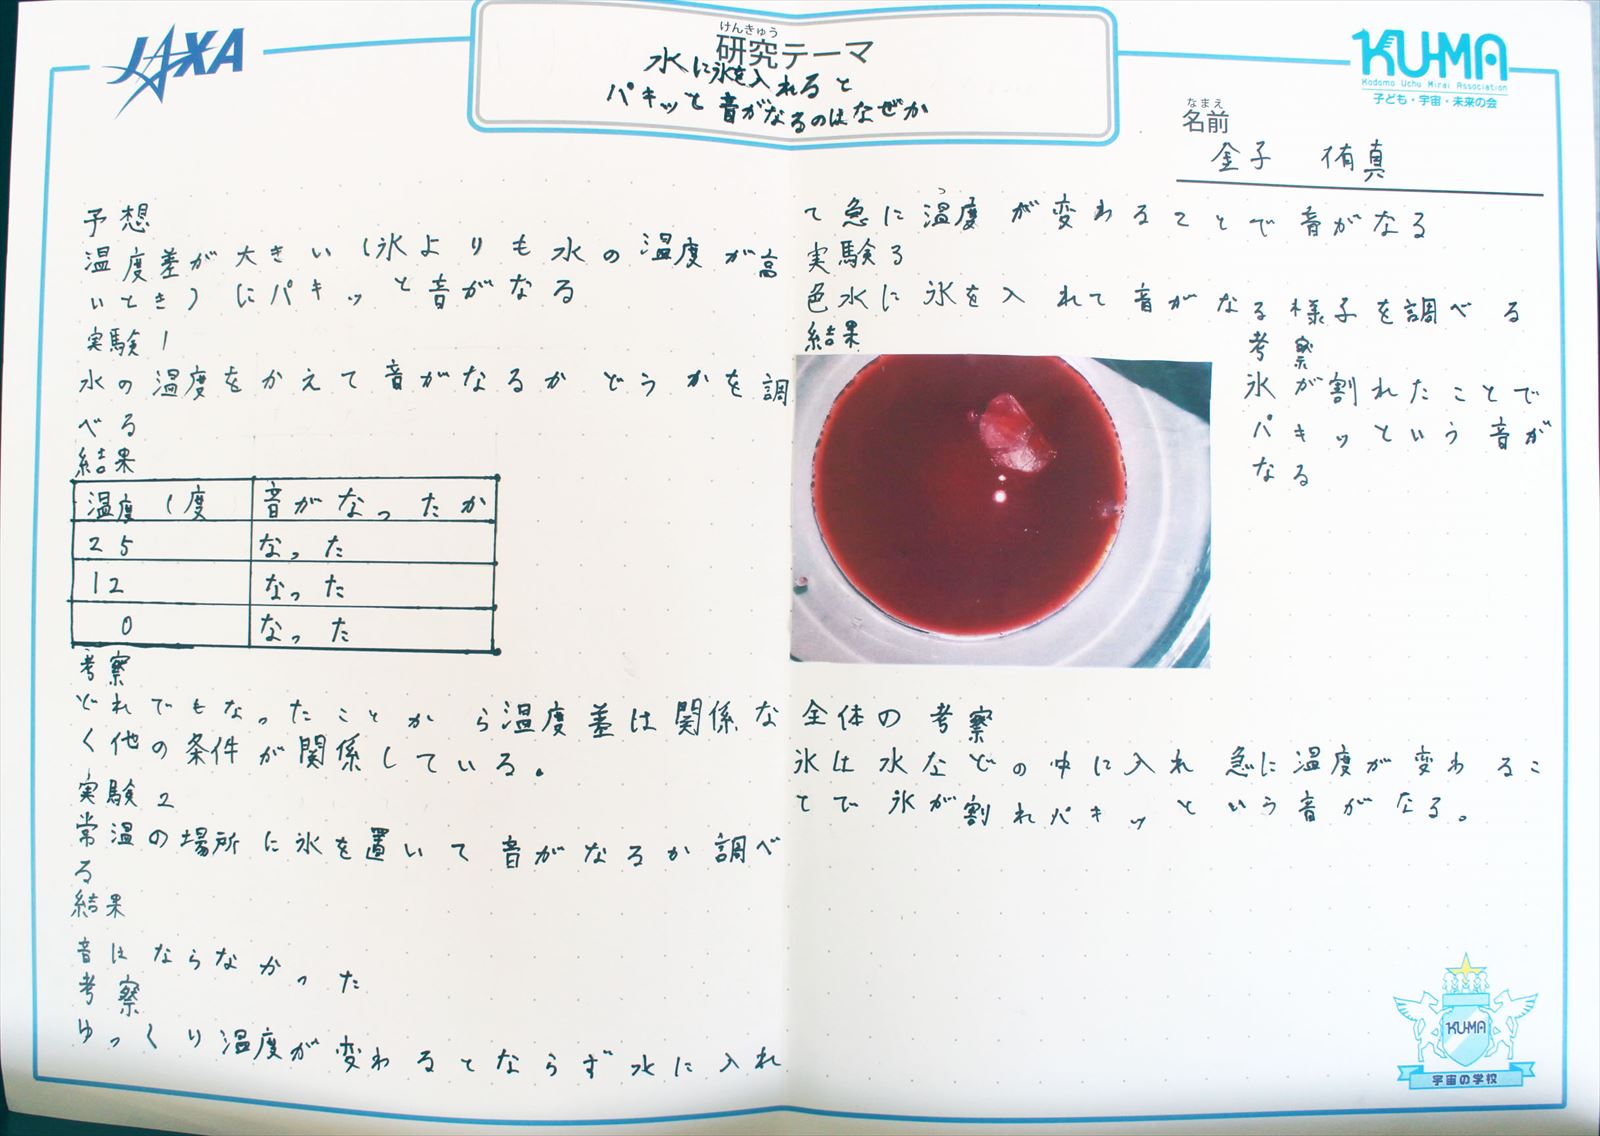 JAXA
けんきゅう
研究テーマ
水に氷を入れると
パキッと音がなるのはなぜか
KU-MA
Kodomo Uchu Mirai Association
子ども・宇宙・未来の会
なまえ
名前
金子 侑真
予想
温度差が大きい(氷よりも水の温度が高
いとき)にパキッと音がなる
実験1
水の温度をかえて音がなるかどうかを調
べる
結果
温度(度 音がなったか
25 なった
12 なった
0 なった
考察
どれでもなったことから温度差は関係な
く他の条件が関係している。
実験2
常温の場所に氷を置いて音がなるか調べ
る
結果
音はならなかった
考察
ゆっくり温度が変わるとならず水に入れ
っ
て急に温度が変わることで音がなる
実験3
色水に氷を入れて音がなる様子を調べる
結果
考察
氷が割れたことで
パキッという音が
なる
全体の考察
氷は水などの中に入れ急に温度が変わるこ
とで氷が割れパキッという音がなる。
KU-MA
宇宙の学校